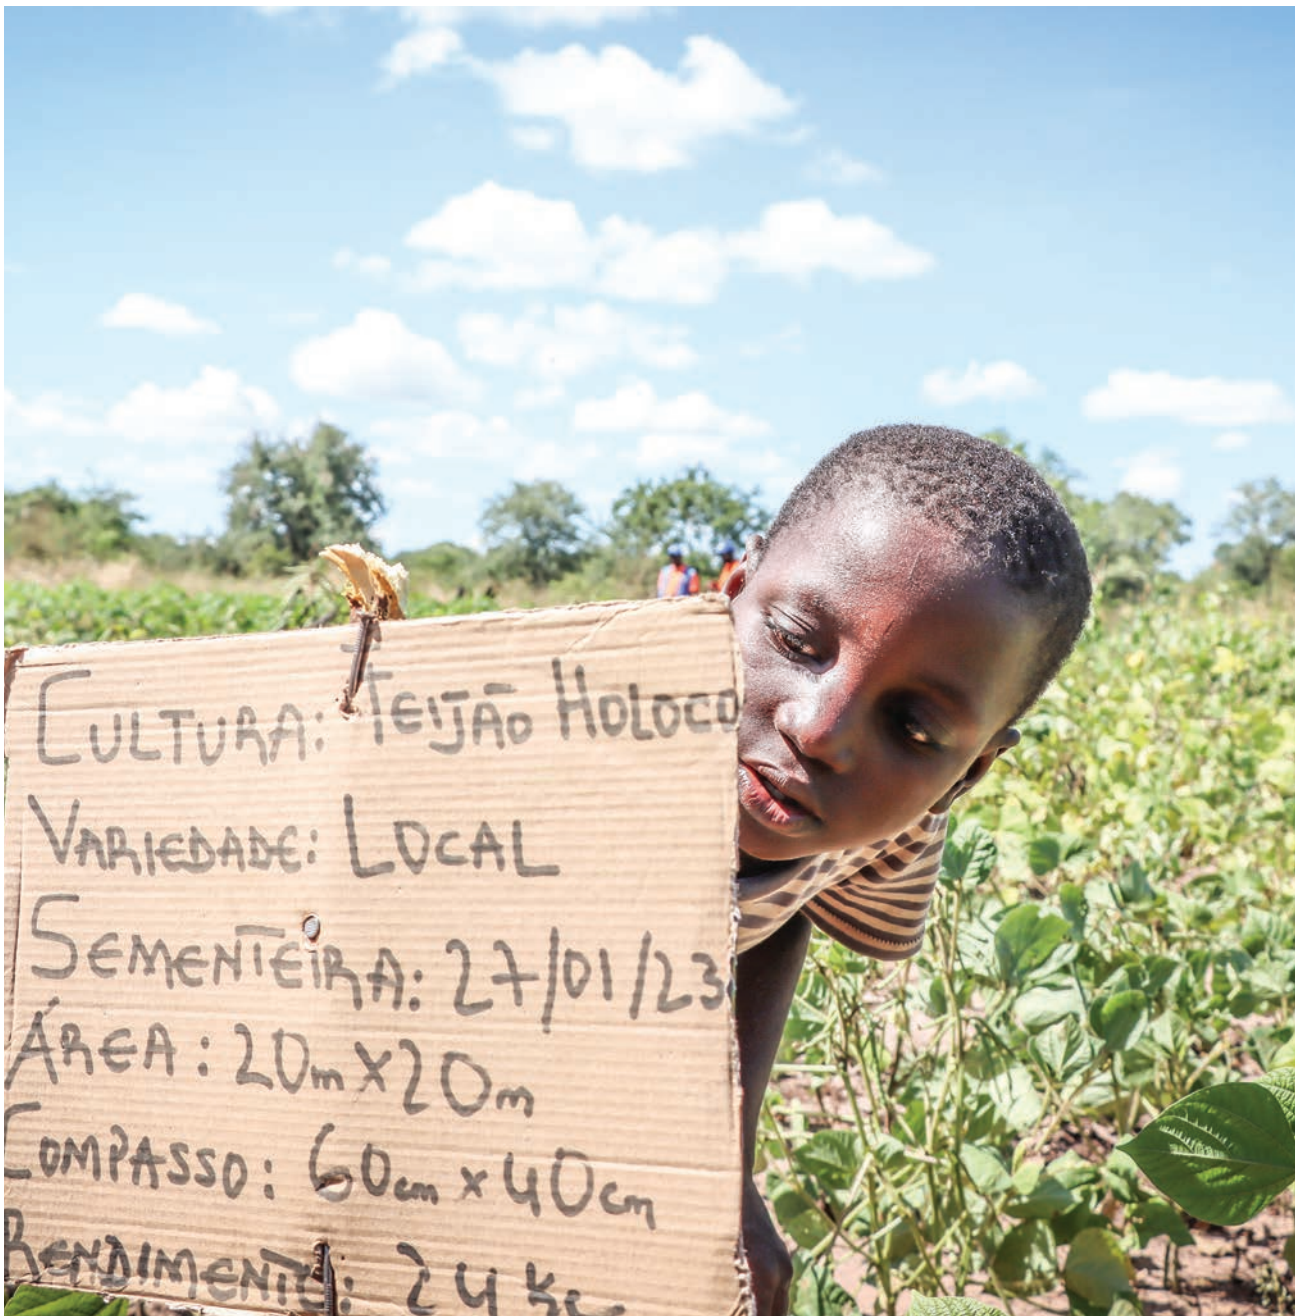 CULTURA: FEIJÃO HOLOCO
VARIEDADE: LOCAL
SEMENTEIRA: 27/01/23
ÁREA: 20m X 20m
COMPASSO: 60cm x 40cm
RENDIMENTO: 24 Kg